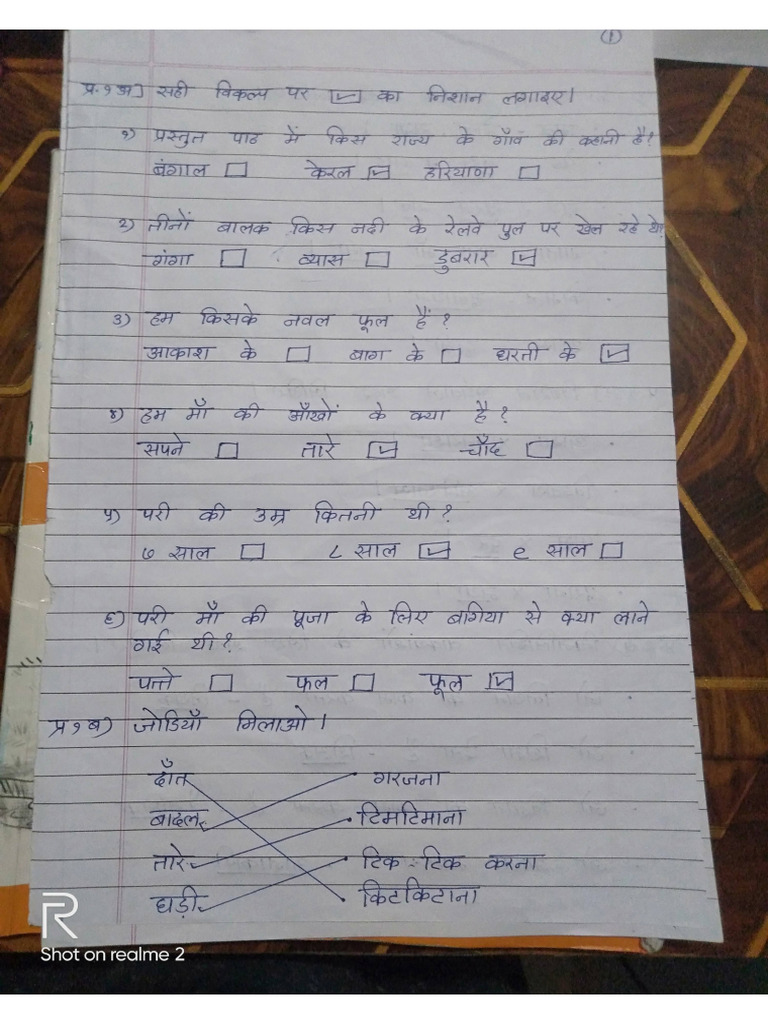 (1)
प्र.१ अ] सही विकल्प पर ☑ का निशान लगाइए।
१) प्रस्तुत पाठ में किस राज्य के गाँव की कहानी है?
बंगाल ☐ केरल ☑ हरियाणा ☐
२) तीनों बालक किस नदी के रेलवे पुल पर खेल रहे थे?
गंगा ☐ व्यास ☐ डुबरार ☑
३) हम किसके नवल फूल हैं?
आकाश के ☐ बाग के ☐ धरती के ☑
४) हम माँ की आँखों के क्या है?
सपने ☐ तारे ☑ चाँद ☐
५) परी की उम्र कितनी थी?
७ साल ☐ ८ साल ☑ ९ साल ☐
६) परी माँ की पूजा के लिए बगिया से क्या लाने
गई थी?
पत्ते ☐ फल ☐ फूल ☑
प्र १ ब) जोडियाँ मिलाओ।
दाँत गरजना
बादल टिमटिमाना
तारे टिक-टिक करना
घड़ी किटकिटाना
R
Shot on realme 2